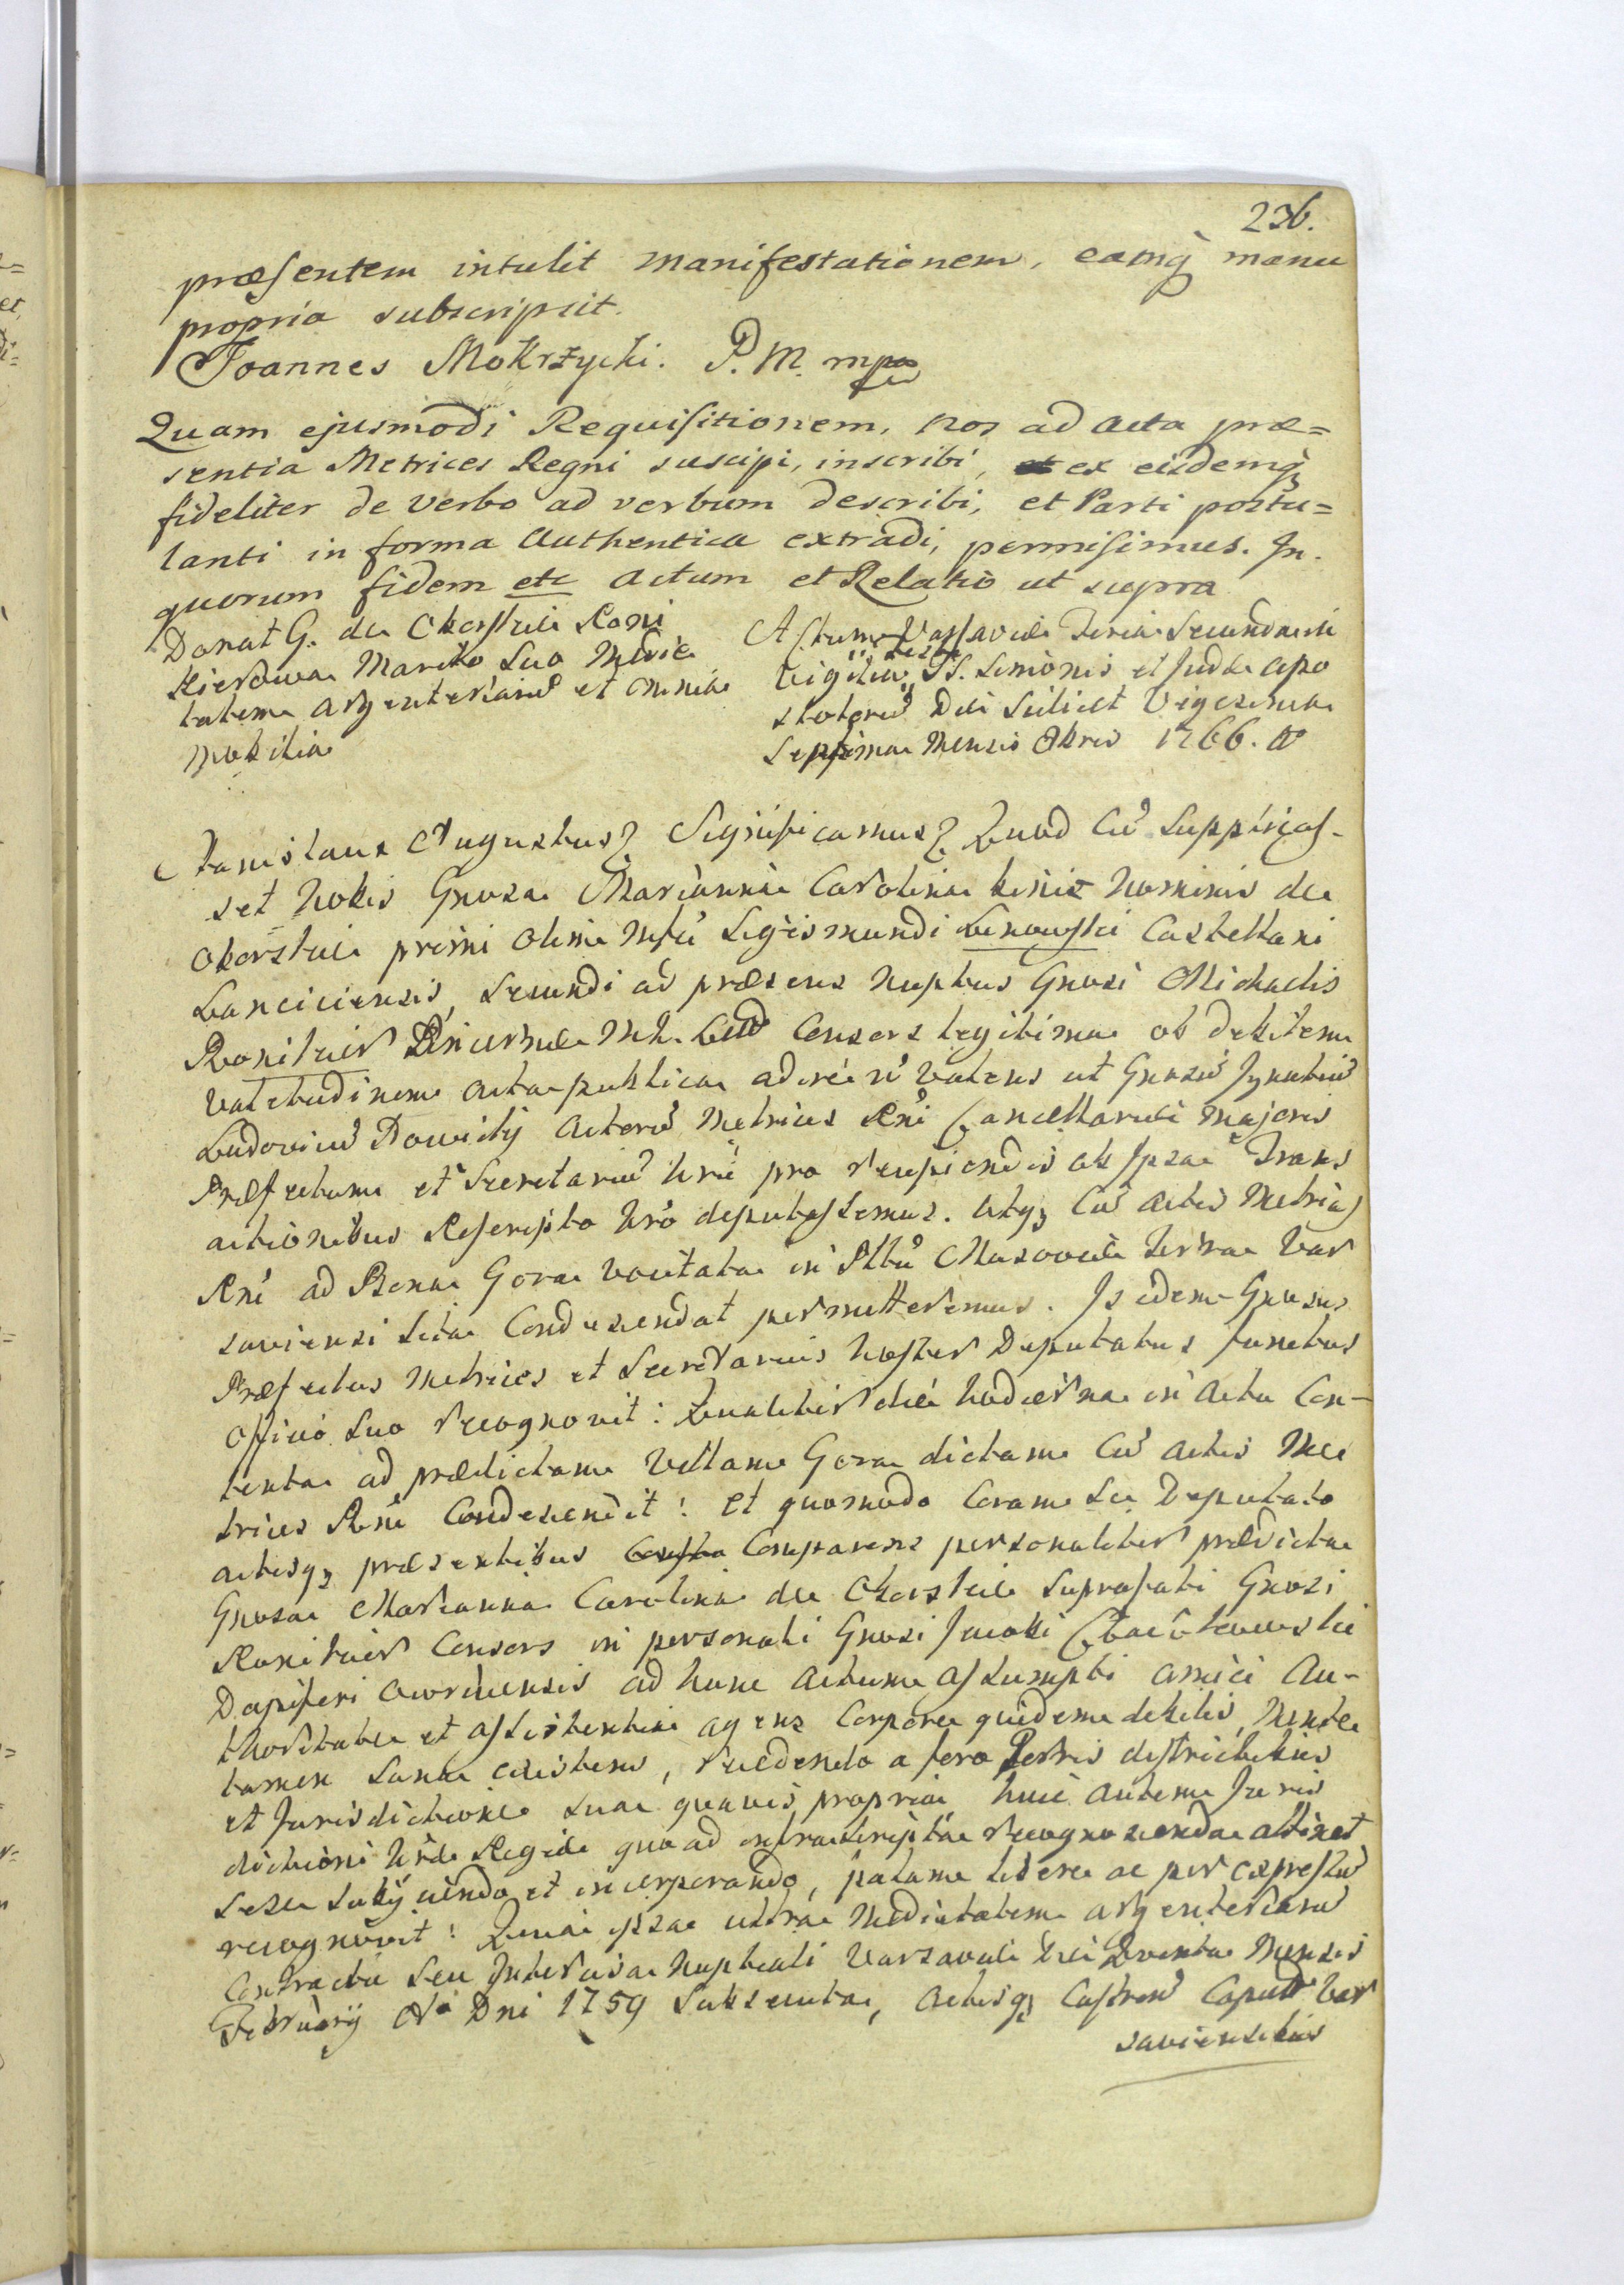 236.
præsentem intulit manifestationem, eamq̃ manu
propria subscripsit.
Joannes Mokrzycki. P. M. mpa
Quam ejusmodi Requisitionem, nos ad acta præ=
sentia Metrices Regni suscipi, inscribi, ex eisdemq̃
fideliter de verbo ad verbum describi, et Parti postu=
lanti in forma Authentica extradi, permisimus. In
quorum fidem etc Actum et Relatio ut supra
Donat G. de Oborskie Roni
kierowa Marito Suo Medie
tatem argenteriarũ et omnia
mobilia
Actum Varsaviæ Feria Secunda in
vigilia Festi SS. Simonis et Judæ apo
stolorũ Die Scilicet Vigesima
Septima Mensis Obris 1766. Ao
Stanislaus Augustus Significamus Quod Cũ Supplicas-
set Nobis Gnosa Marianna Carolina binis Nominis de
Oborskie primi olim Mfci Sigismundi Lenowski Castellani
Lanciciensis, Secundi ad præsens Nuptus Gnosi Michaelis
Ronikier Consors legitima ob debilem
Valetudinem acta publica adire ñ valens ut Gnosũ Ignatiũ
Ludoviciũ Dowily Actorũ Metrices Rni Cancellariæ Majoris
Præfectum et Secretariũ Nrũ pro recipiendis ab Ipsa Trans
actionibus Rescripto Nro deputassemus. Utq̃ Cũ actis Metrices
Rni ad Bona Gora vocitata in Pltũ Masoviæ Terra Var
saviensi Sita Condescendat permitteremus. Is idem Gnosus
Præfectus Metrices et Secretarius Noster Deputatus functus
officio Suo recognovit: Qualiter die hodierna in Actu Con-
tenta ad prædictam Villam Gora dictam Cũ actis Me
trices Rni Condescendit: Et quomodo Coram Se Deputato
actisq̃ præsentibus Comparens personaliter prædicta
Gnosa Marianna Carolina de Oborskie Suprafati Gnosi
Ronikier Consors in personali Gnosi Jacobi
Dapiferi ad hunc actum assumpti amici au-
thoritate et assistentia agens Corpore quidem debilis, Mente
tamen Sana existens, recedendo a foro Terris districtibus
et Jurisdictione Sua quavis propria huic autem Juris
dictioni Nræ Regiæ quoad infrascripta recognoscenda attinet
Sese Subijciendo et incorporando, palam libere ac per expressũ
recognovit: Quia ipsa ultra Medietatem argenteriarũ
Contractu Seu Intercisa Nuptiali Varsaviæ Die Quinta Mensis
Februarij Ao Dni 1759 Subsecuta, actisq̃ Castren Capitt Var
saviensibus